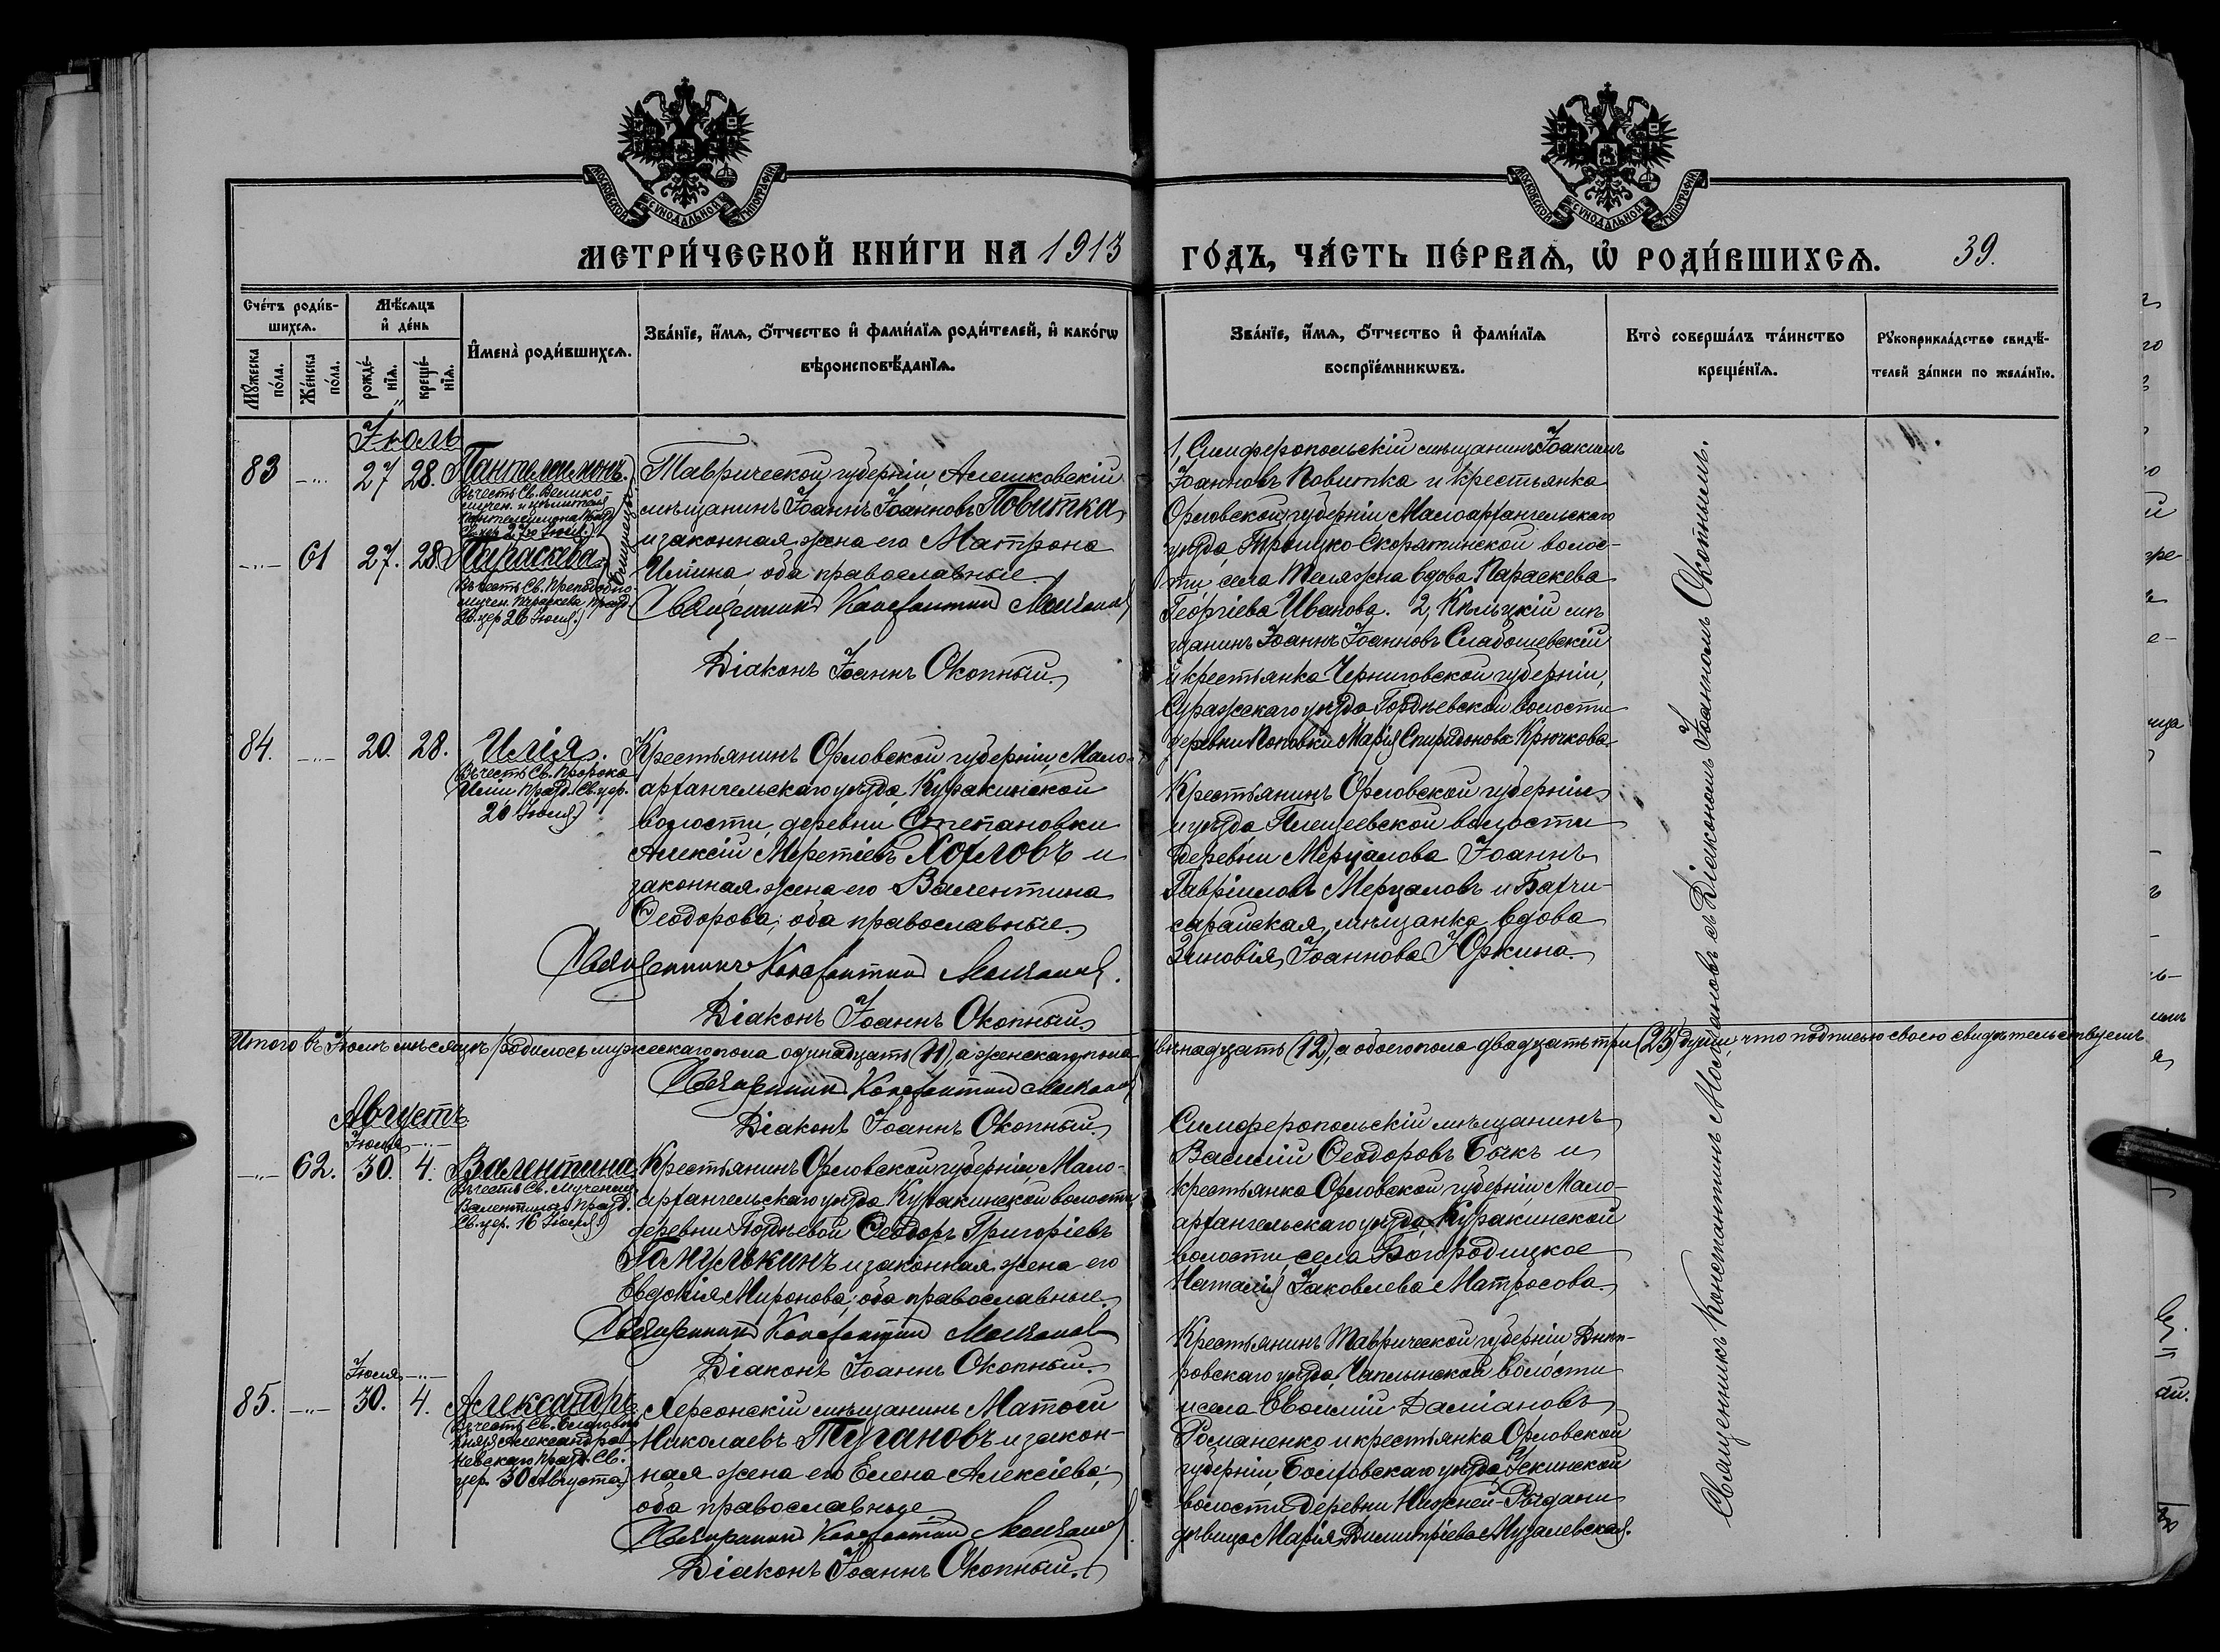 МОСКОВСКОЙ СУНОДАЛЬНОЙ ТИПОГРАФІИ
МОСКОВСКОЙ СУНОДАЛЬНОЙ ТИПОГРАФІИ
МЕТРИ́ЧЕСКОЙ КНИ́ГИ НА 1913
ГО́ДЪ, ЧА́СТЬ ПЕ́РВАѦ, Ѡ҆ РОДИ́ВШИХСѦ. 39.
Сче́тъ роди́в-
шихсѧ.
Мꙋжеска по́ла.
Же́нска по́ла.
Мѣ́сѧцъ
и҆ де́нь
рожде́-
нїѧ.
креще́-
нїѧ.
И҆мена̀ роди́вшихсѧ.
Зва́нїе, и҆́мѧ, ѻ҆́тчество и҆ фами́лїѧ роди́телей, и҆ како́гѡ
вѣроисповѣ́данїѧ.
Зва́нїе, и҆́мѧ, ѻ҆́тчество и҆ фами́лїѧ
воспрїе́мникѡвъ.
Кто̀ соверша́лъ та́инство
креще́нїѧ.
Рꙋкоприкла́дство свидѣ́-
телей за́писи по жела́нїю.
Іюль
83 -"- 27 28. Пантелеимонъ.
(Въ честь Св. Велико-
мучен. и цѣлителя
Пантелеимона празд.
Св. цер. 27го Іюля.)
-"- 61 27. 28. Параскева
(Въ честь Св. Преподобно-
мучен. Параскевы празд.
Св. цер 26 Іюля.)
Близнецы
Таврической губерніи, Алешковскій
мѣщанинъ Іоаннъ Іоанновъ Повитка
и законная жена его Матрона
Илiина, оба православные.
Священникъ Константинъ Молчановъ
Діаконъ Іоаннъ Окопный.
1, Симферопольскій мѣщанинъ Іоакимъ
Іоанновъ Повитка и крестьянка
Орловской губерніи Малоархангельскаго
уѣзда, Троицко-Скорятинской волос-
ти села Теляжна вдова Параскева
Георгіева Иванова. 2, Кѣлецкій мѣ-
щанинъ Іоаннъ Іоанновъ Слабошевскій
и крестьянка Черниговской губерніи,
Суражскаго уѣзда Гордѣевской волости
деревни Поповки Марія Спиридонова Крючкова
84. -"- 20. 28. Илія.
(Въ честь Св. Пророка
Иліи празд. Св. цер.
20 Іюля)
Крестьянинъ Орловской губерніи, Мало-
архангельскаго уѣзда, Куракинской
волости, деревни, Степановки
Алексій Мелетіевъ Хохловъ и
законная жена его Валентина
Ѳеодорова; оба православные.
Священникъ Константинъ Молчановъ.
Діаконъ Іоаннъ Окопный.
Крестьянинъ Орловской губерніи
и уѣзда Плещеевской волости
деревни Мерцалова Іоаннъ
Гавріиловъ Мерцаловъ и Бахчи-
сарайская мѣщанка вдова
Зиновія Іоаннова Юркина.
Итого въ Іюлѣ мѣсяцѣ родилось мужескаго пола одинадцать (11), а женскаго пола двѣнадцать (12), а обоего пола двадцать три (23) души что подписью своею свидѣтельствуемъ
Священникъ Константинъ Молчановъ
Діаконъ Іоаннъ Окопный.
Августъ
Іюля -"-
-"- 62. 30. 4. Валентина.
(Въ честь Св. Мученицы
Валентины празд.
Св. цер. 16 Іюля)
Крестьянинъ Орловской губерніи, Мало-
архангельскаго уѣзда Куракинской волости
деревни Гордѣевой Ѳеодоръ Григоріевъ
Гамулькинъ и законная жена его
Евдокія Миронова; оба православные.
Священникъ Константинъ Молчановъ
Діаконъ Іоаннъ Окопный.
Симферопольскій мѣщанинъ
Василій Ѳеодоровъ Быкъ и
крестьянка Орловской губерніи Мало-
архангельскаго уѣзда, Куракинской
волости, села Богородицкое
Наталія Іаковлева Матросова.
Іюля -"-
85. -"- 30. 4. Александръ
(Въ честь Св. Благовѣр.
Князя Александра
Невскаго празд. Св.
цер. 30 Августа)
Херсонскій мѣщанинъ Матѳей
Николаевъ Тугановъ и закон-
ная жена его Елена Алексіева;
оба православные
Священникъ Константинъ Молчановъ
Діаконъ Іоаннъ Окопный.
Крестьянинъ Таврической губерніи Днѣп-
ровскаго уѣзда, Чаплынской волости
и села Евфимій Даміановъ
Романенко и крестьянка Орловской
губерніи, Болховскаго уѣзда,
волости деревни Нижней-
дѣвица Марія Димитріева Музалевская.
Священникъ Константинъ Молчановъ съ Діакономъ Іоанномъ Окопнымъ.